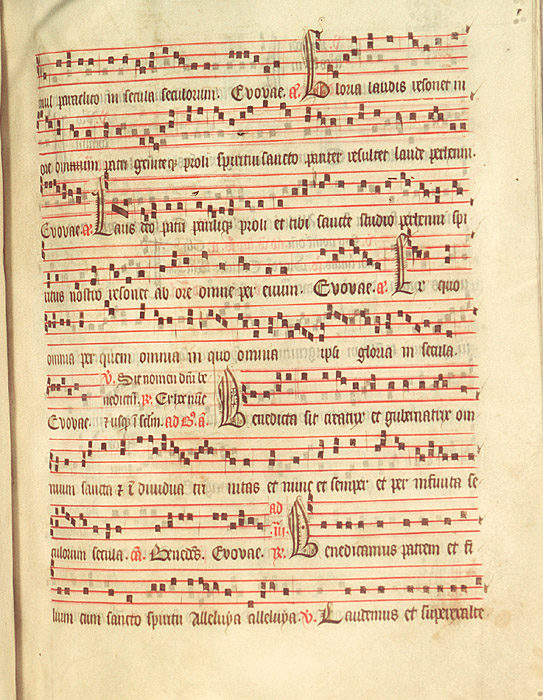 mul paraclito in secula seculorum. Evovae. a. Gloria laudis resonet in
ore omnium patri geniteq3 proli spiritui sancto pariter resultet laude perhenni.
Evovae. a. Laus deo patri pariliq3 proli et tibi sancte studio perhenni spi
ritus nostro resonet ab ore omne per evum. Evovae. a. Ex quo
omnia per quem omnia in quo omnia ipsi gloria in secula.
V. Sit nomen dni be
nedictu. R. Ex hoc nuc
Evovae. ad B. a. Benedicta sit creatrix et gubernatrix om
nium sancta et i dividua tri nitas et nunc et semper et per infinita se
culorum secula. Bened. Evovae. ad iii. R. Benedicamus patrem et fi
lium cum sancto spiritu Alleluya alleluya. V. Laudemus et superexalte